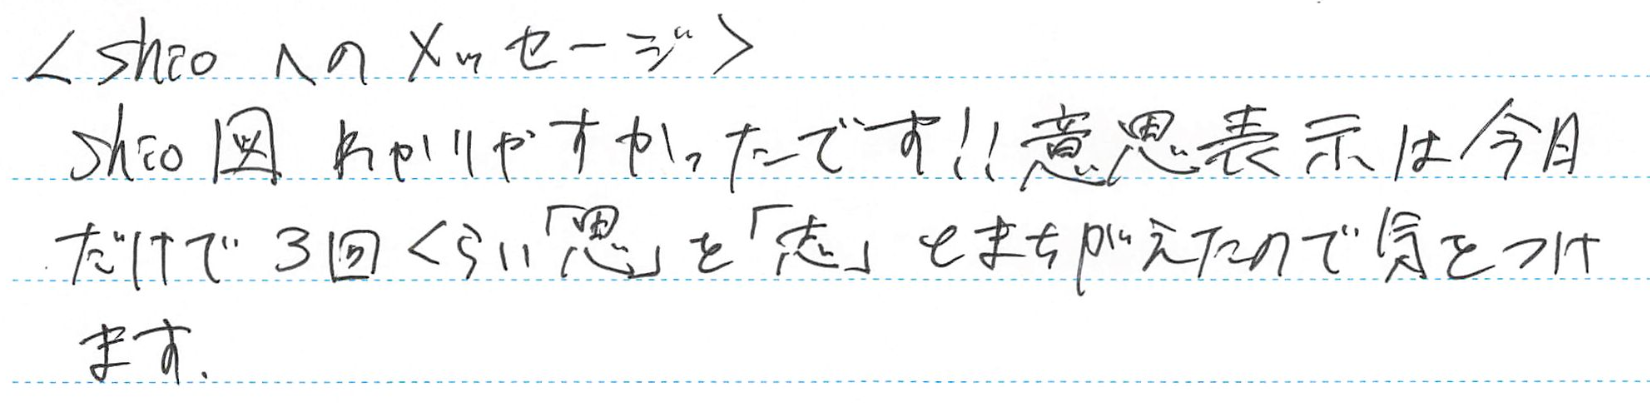 <shioへのメッセージ>
shio図わかりやすかったです!!意思表示は今月
だけで3回くらい「思」を「志」とまちがえたので気をつけ
ます.